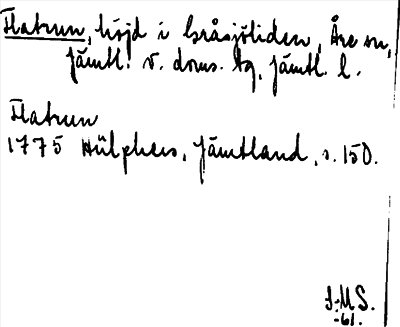 Flatrun, höjd i Gråsjöliden, Åre sn,
Jämtl. v. doms. tg, Jämtl. l.
Flatrun
1775 Hülphers, Jämtland, s. 150.
J-M S.
-61.